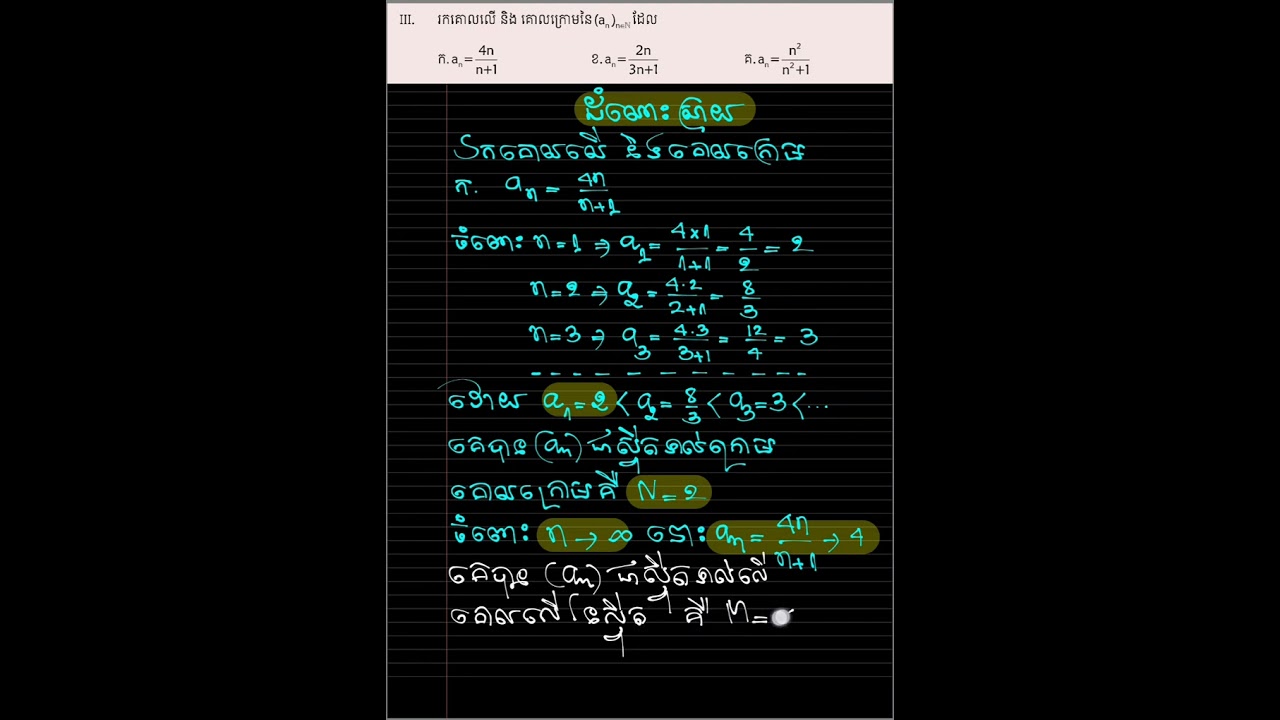 III. រកគោលលើ និង គោលក្រោមនៃ (aₙ)ₙ∈ℕ ដែល
ក. aₙ = 4n/(n+1) ខ. aₙ = 2n/(3n+1) គ. aₙ = n²/(n²+1)
ដំណោះស្រាយ
រកគោលលើ និងគោលក្រោម
ក. aₙ = 4n/(n+1)
ចំពោះ n=1 ⇒ a₁ = (4×1)/(1+1) = 4/2 = 2
n=2 ⇒ a₂ = (4·2)/(2+1) = 8/3
n=3 ⇒ a₃ = (4·3)/(3+1) = 12/4 = 3
ដោយ a₁=2 < a₂ = 8/3 < a₃=3 < ...
គេបាន (aₙ) ជាស្វ៊ីតទាល់ក្រោម
គោលក្រោមគឺ N=2
ចំពោះ n → ∞ នោះ aₙ = 4n/(n+1) → 4
គេបាន (aₙ) ជាស្វ៊ីតទាល់លើ
គោលលើនៃស្វ៊ីត គឺ M=